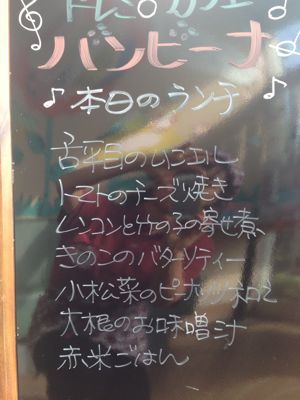 ドレミ♪カフェ
バンビーナ
♪本日のランチ♪
舌平目のムニエル
トマトのチーズ焼き
レンコンと竹の子の寄せ煮
きのこのバターソティー
小松菜のピーナッツ和え
大根のお味噌汁
赤米ごはん